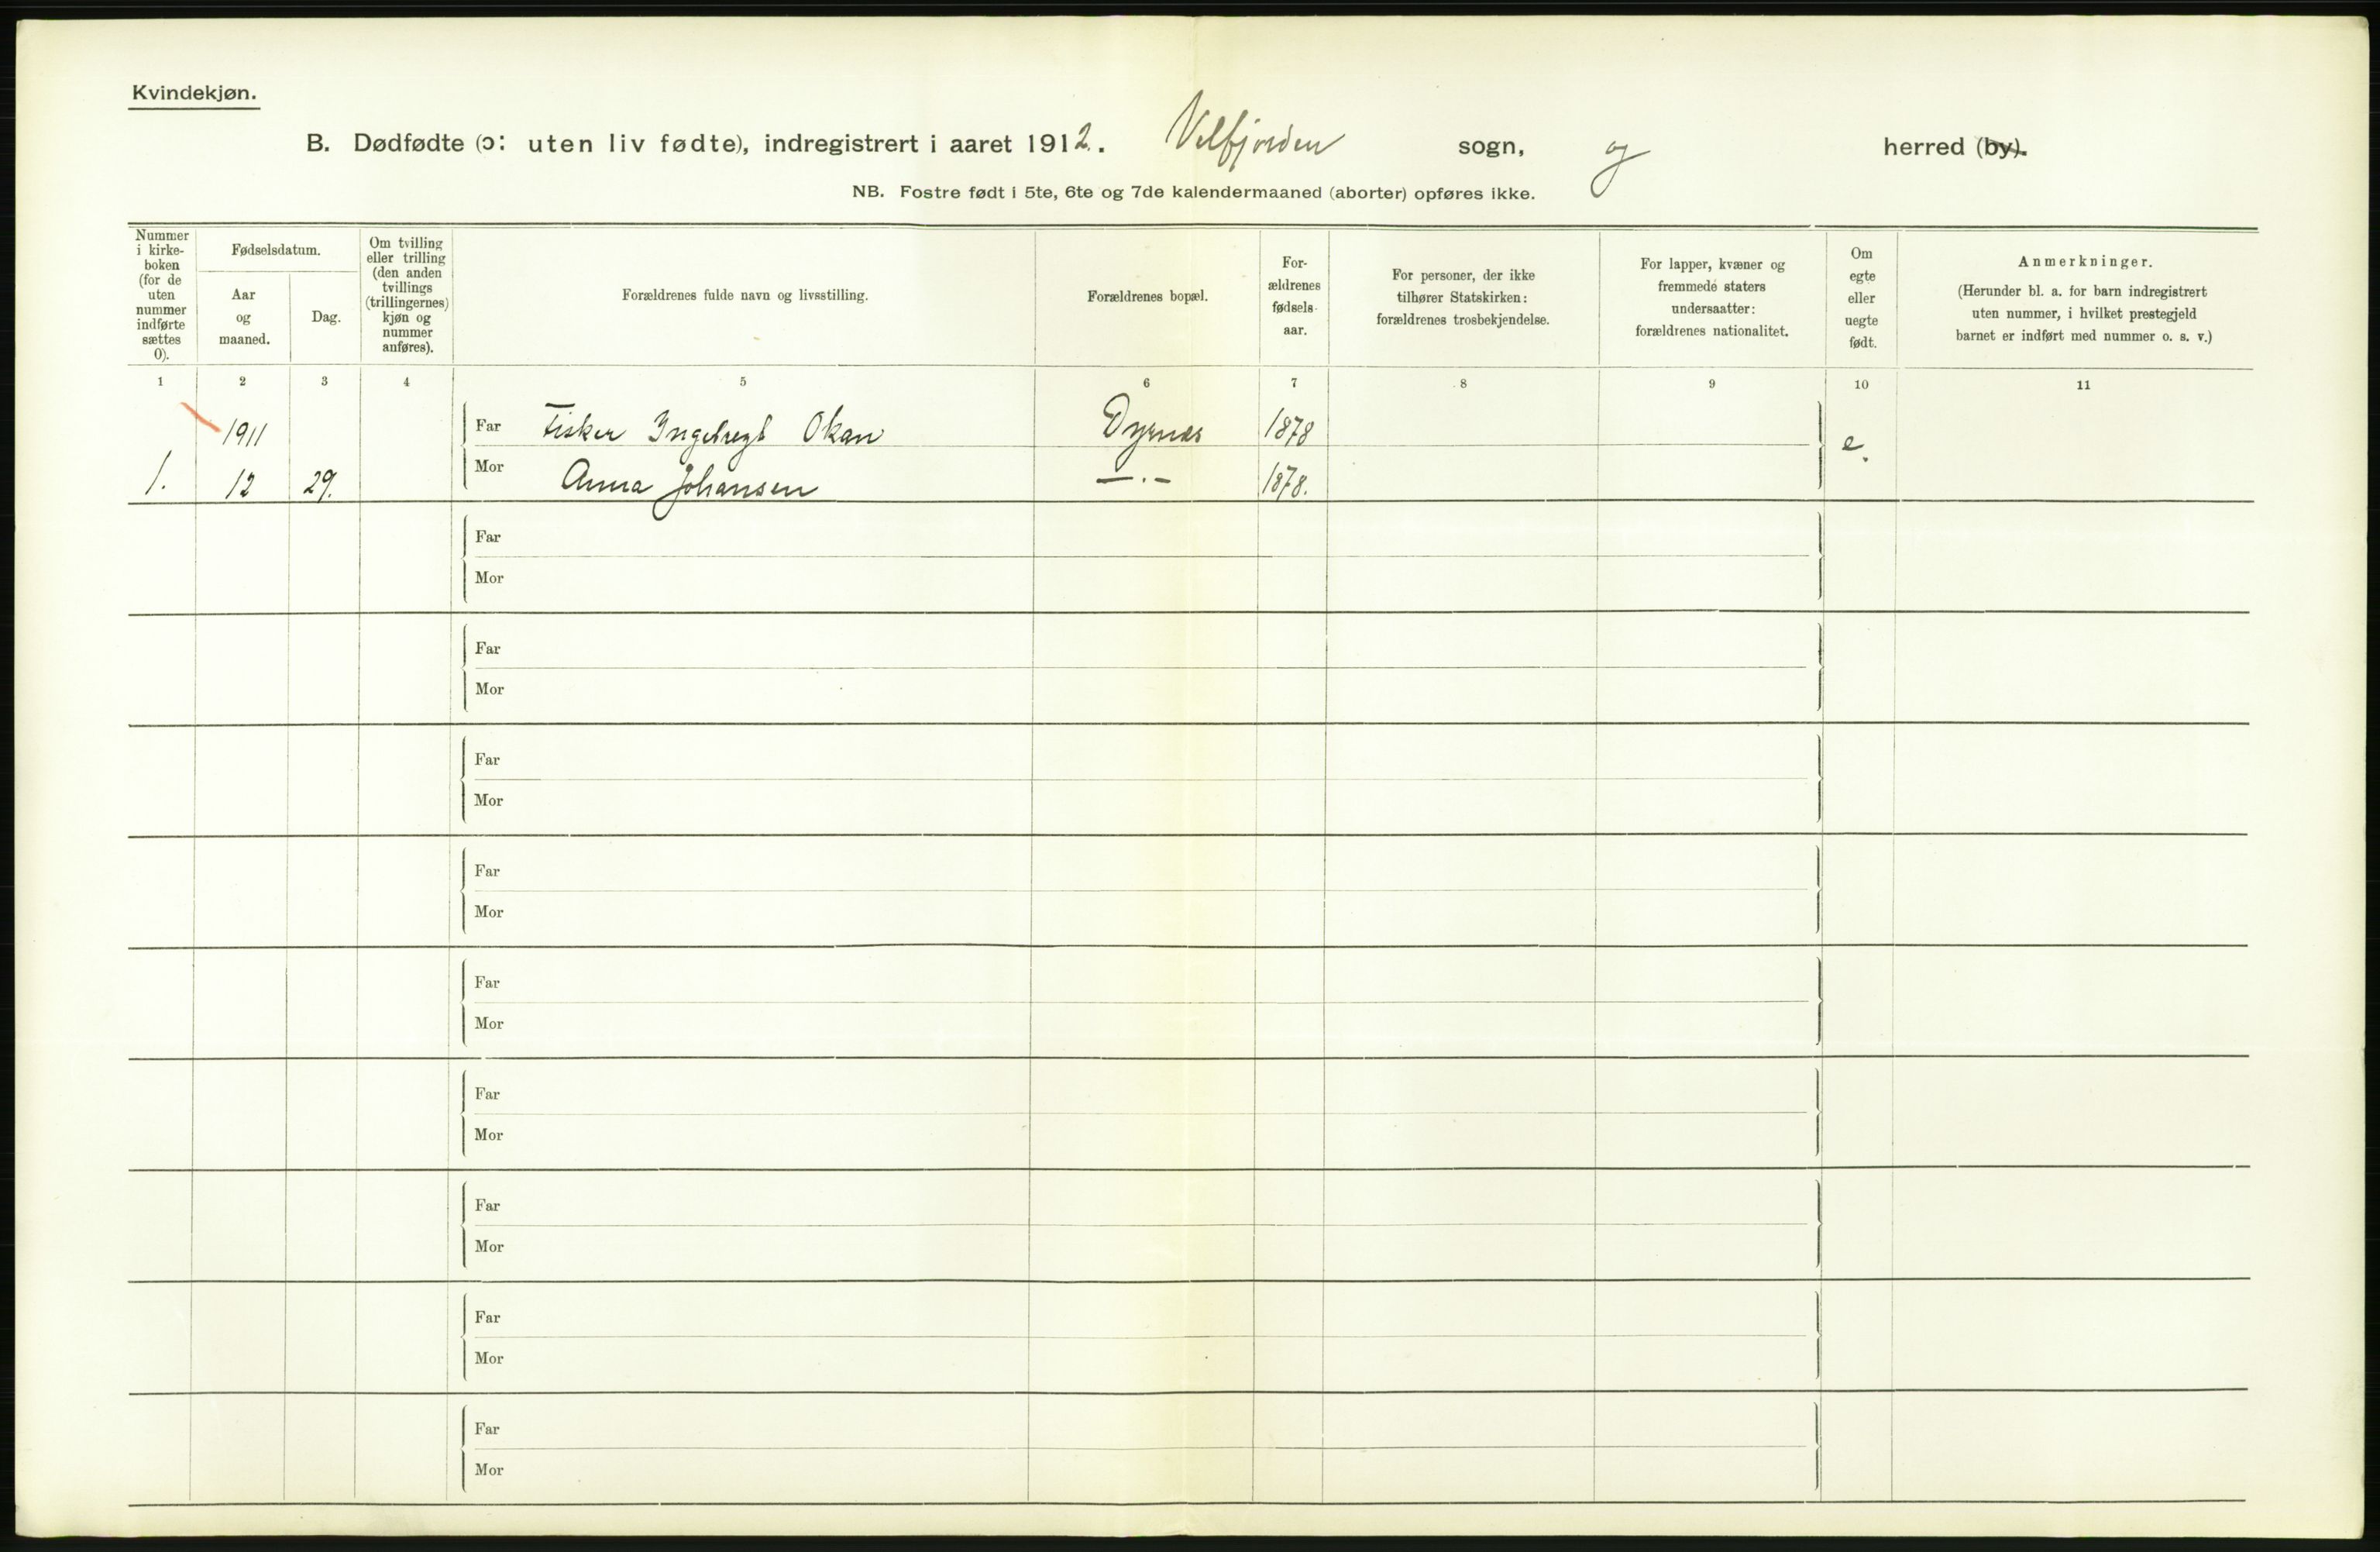 Kvindekjøn.
B. Dødfødte (ɔ: uten liv fødte), indregistrert i aaret 1912. Velfjorden sogn, og herred (by).
NB. Fostre født i 5te, 6te og 7de kalendermaaned (aborter) opføres ikke.
Nummer
i kirke-
boken
(for de
uten
nummer
indførte
sættes
0).
Fødselsdatum.
Aar
og
maaned.
Dag.
Om tvilling
eller trilling
(den anden
tvillings
(trillingernes)
kjøn og
nummer
anføres).
Forældrenes fulde navn og livsstilling.
Forældrenes bopæl.
For-
ældrenes
fødsels-
aar.
For personer, der ikke
tilhører Statskirken:
forældrenes trosbekjendelse.
For lapper, kvæner og
fremmede staters
undersaatter:
forældrenes nationalitet.
Om
egte
eller
uegte
født.
Anmerkninger.
(Herunder bl. a. for barn indregistrert
uten nummer, i hvilket prestegjeld
barnet er indført med nummer o. s. v.)
1 2 3 4 5 6 7 8 9 10 11
1911 Far Fisker 1878 e.
1. 12 29. Mor Anna Johansen —.— 1878.
Far
Mor
Far
Mor
Far
Mor
Far
Mor
Far
Mor
Far
Mor
Far
Mor
Far
Mor
Far
Mor